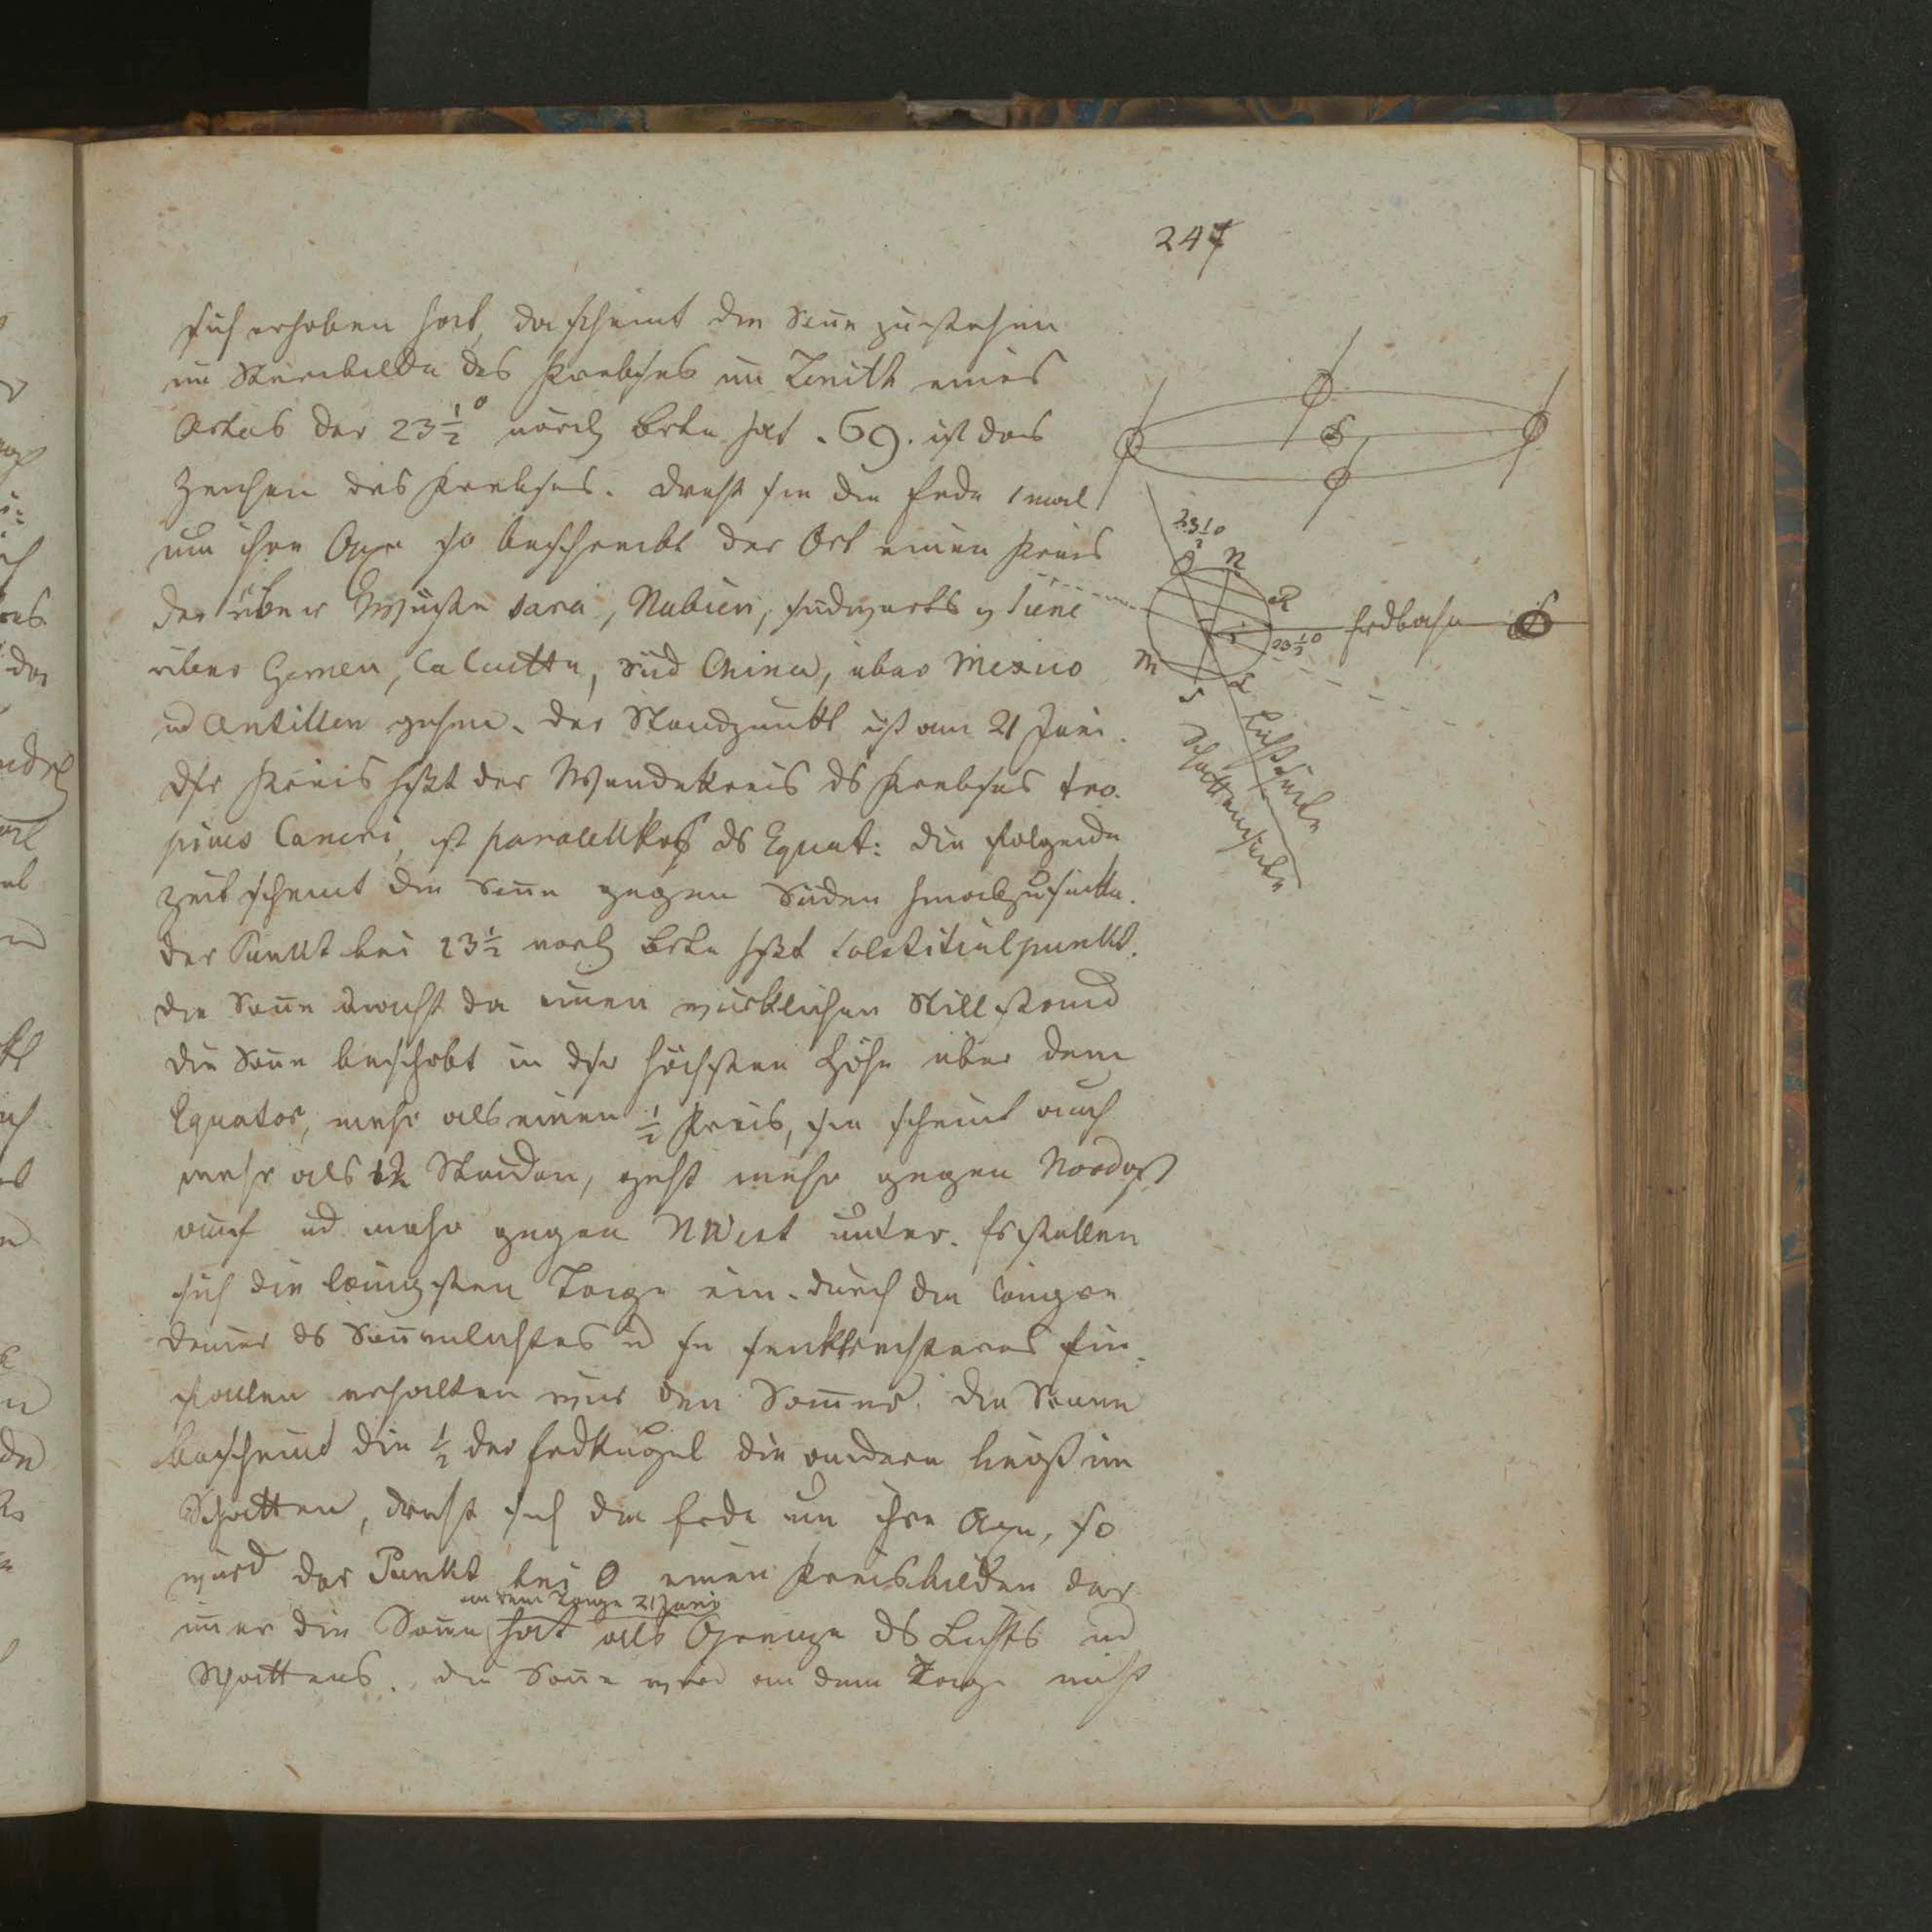 247
sich erhoben hat, da scheint die Soñe zu stehen
im Sternbilde des Krebses im Zenith eines
Ortes der 23½° nördl Brte hat . 69 . ist das
Zeichen des Krebses. Dreht sie die Erde 1 mal
um ihre Axe so beschreibt der Ort einen Kreis
der über Wüste Sara, Nubien, südwärts v Siene
über Yemen, Calcutta, Süd China, über Mexico
ud Antillen gehen. der Standpunkt ist am 21 Juni.
dsr Kreis hßt der Wendekreis ds Krebses tro-
picus Cancri, ist parallel ds Equat: die folgende
Zeit scheint die Soñe gegen Süden herabzusinken.
der Punkt bei 23½ nördl Brte hßt Solstitialpunkt.
die Soñe macht da einen wirklichen Stillstand
die Soñe beschrbt in dsr höchsten Höhe über dem
Equator, mehr als einen ½ Kreis, sie scheint auch
mehr als 12 Stunden, geht mehr gegen Nordost
auf ud mehr gegen NWest unter. Es stellen
sich die längsten Tage ein. durch die längre
Dauer ds Soñenlichtes u sn senkrechteres Ein-
fallen erhalten wir den Som̃er. die Sonne
bescheint die ½ der Erdkugel die andere liegt im
Schatten, dreht sich die Erde um ihre Axe, so
wird der Punkt bei O einen Kreis bilden der
an dem Tage 21 Juni
im̃er die Soñe hat als Grenze ds Lichts ud
Schattens. die Soñe wird an dem Tage nicht
S
23½°
O N
R
M
S L
23½°
Erdbahn
S
Lichtseite
Schattenseite